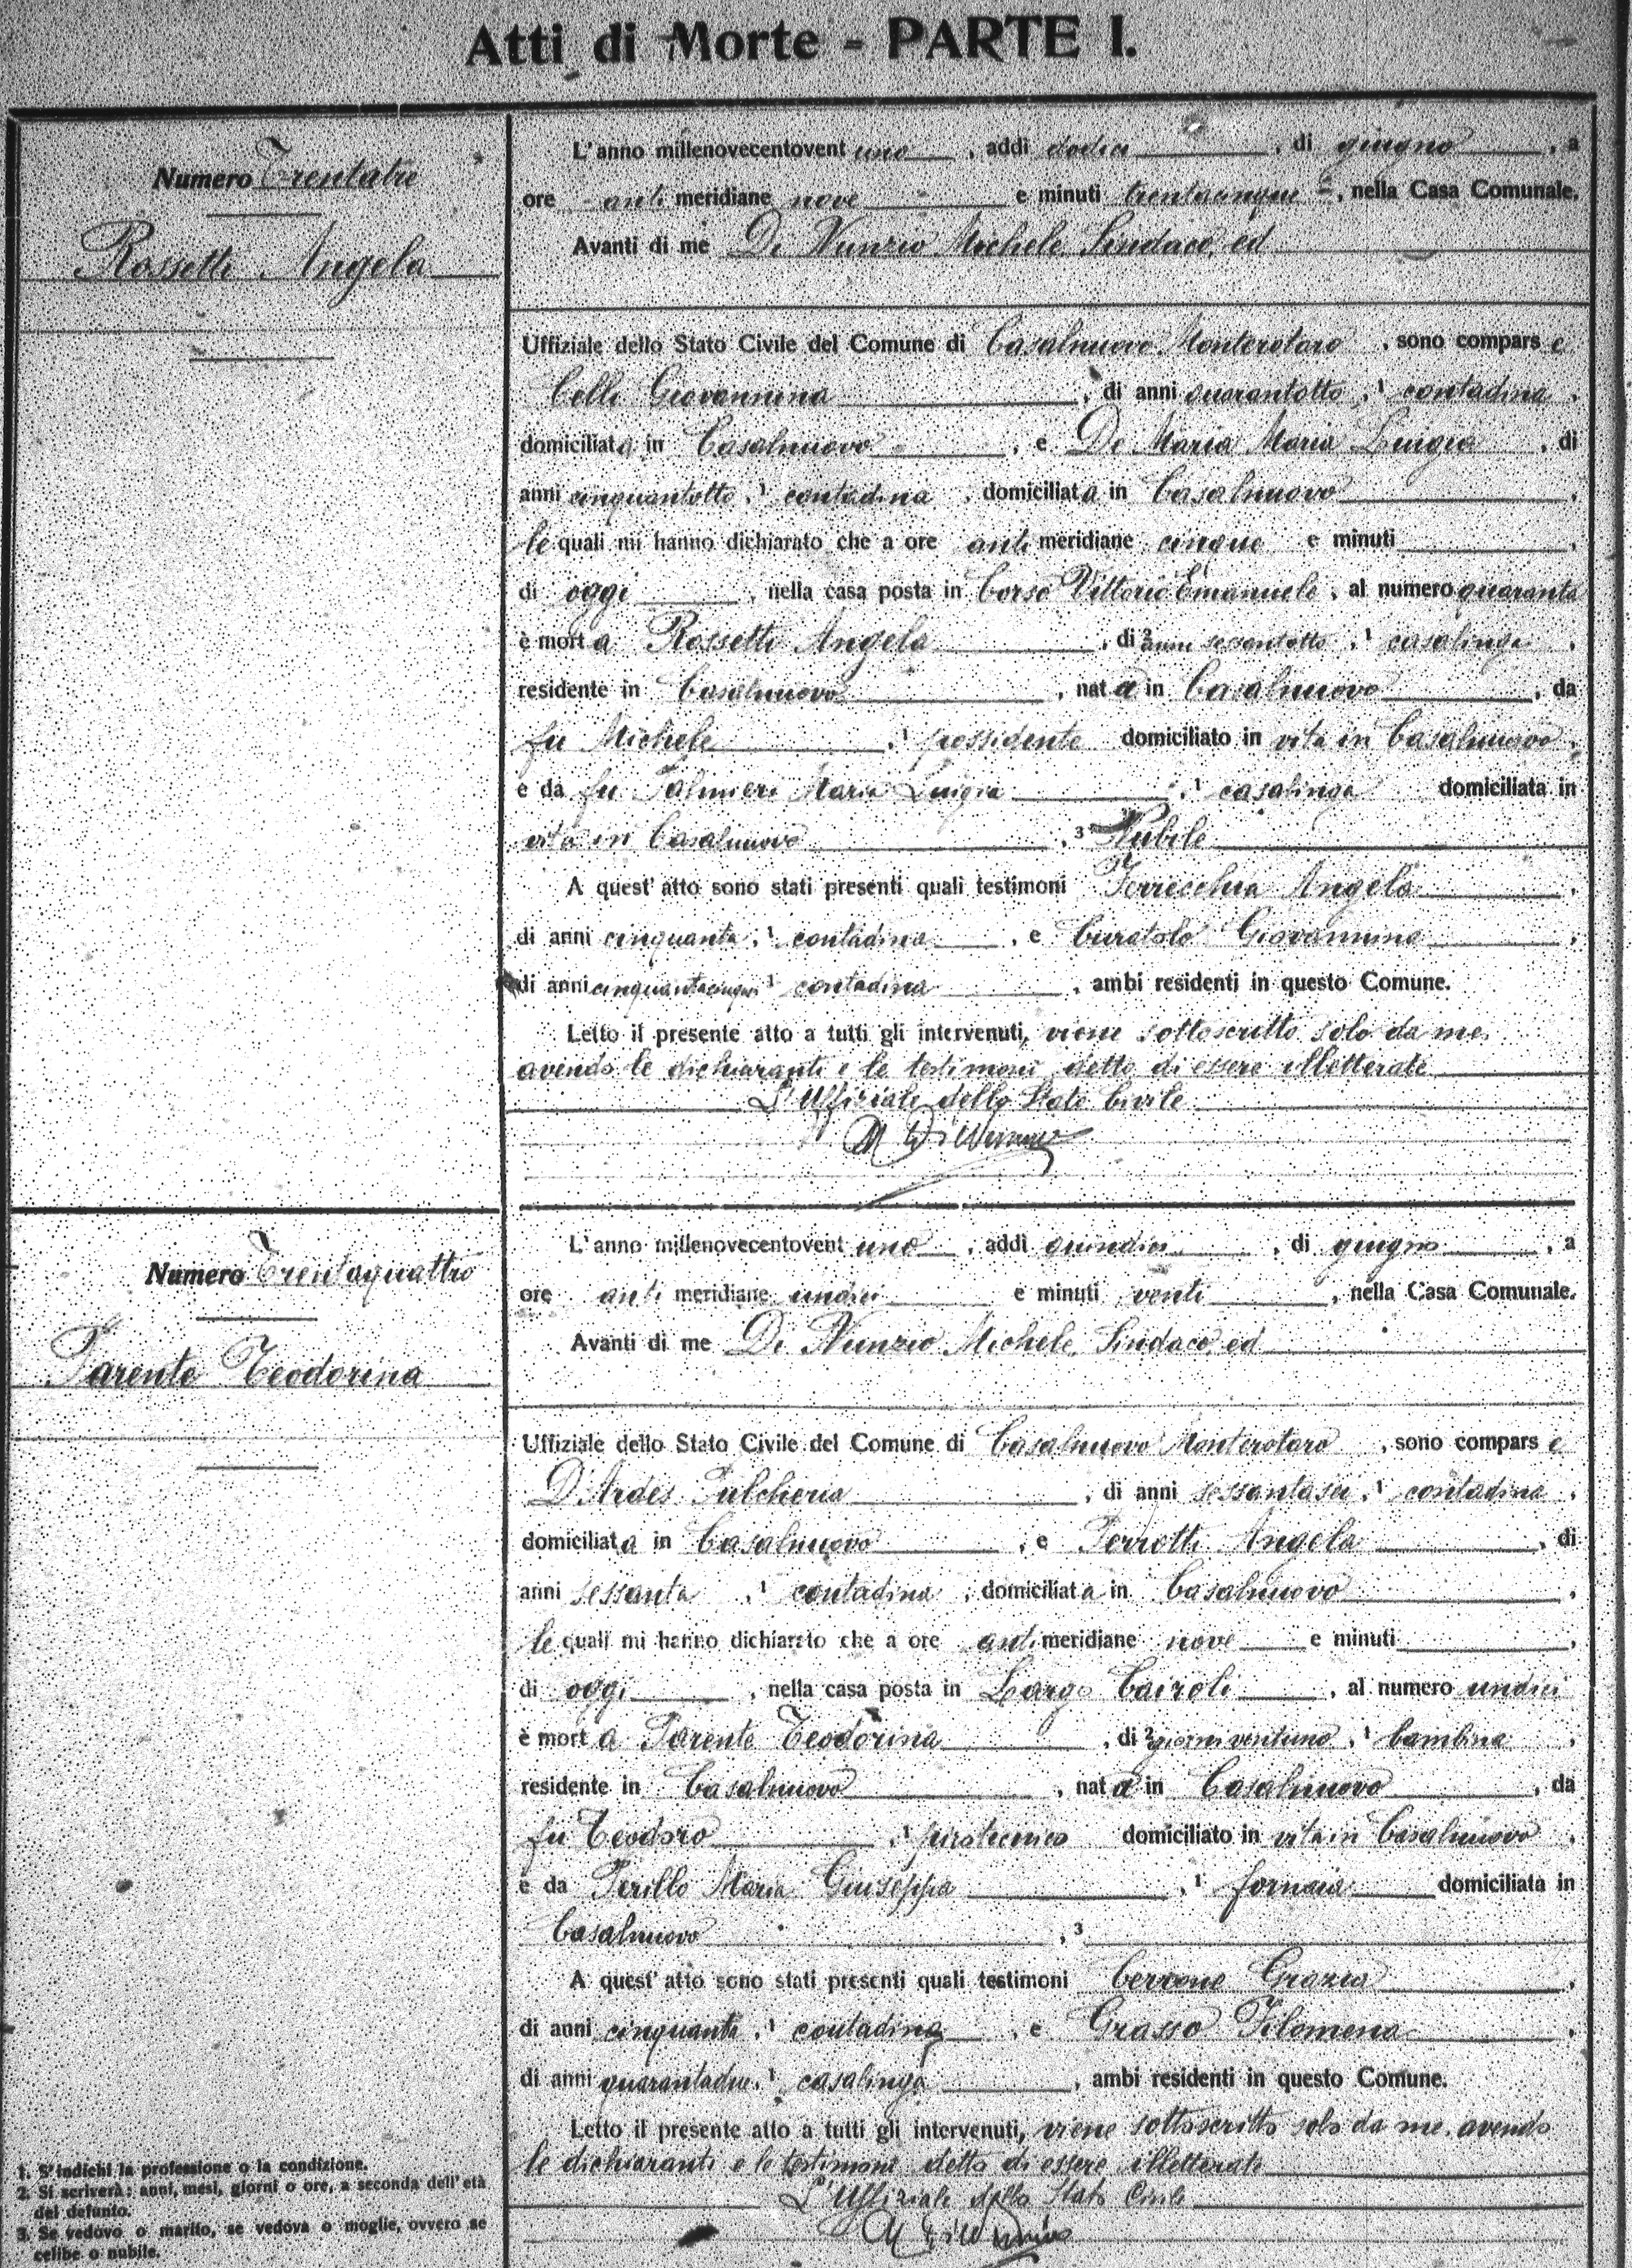 Atti di Morte - PARTE I.
Numero Trentatre
Rossetti Angela
L'anno millenovecentovent uno, addì dodici, di giugno, a
ore anti meridiane nove e minuti trentacinque, nella Casa Comunale.
Avanti di me Di Nunzio Michele Sindaco, ed
Uffiziale dello Stato Civile del Comune di Casalnuovo Monterotaro, sono compars e
Celli Giovannina, di anni quarantotto, 1 contadina,
domiciliata in Casalnuovo, e De Maria Maria Luigia, di
anni cinquantotto, 1 contadina, domiciliata in Casalnuovo,
le quali mi hanno dichiarato che a ore anti meridiane cinque e minuti,
di oggi, nella casa posta in Corso Vittorio Emanuele, al numero quaranta
è morta Rossetti Angela, di 2 anni sessantotto, 1 casalinga,
residente in Casalnuovo, nata in Casalnuovo, da
fu Michele, 1 possidente domiciliato in vita in Casalnuovo,
e da fu Palmieri Maria Luigia, 1 casalinga domiciliata in
vita in Casalnuovo, 3 Nubile
A quest'atto sono stati presenti quali testimoni Ferrecchia Angela,
di anni cinquanta, 1 contadina, e Curatolo Giovannina,
di anni cinquantacinque 1 contadina, ambi residenti in questo Comune.
Letto il presente atto a tutti gli intervenuti, viene sottoscritto solo da me,
avendo le dichiaranti e le testimoni detto di essere illetterate
L'Uffiziale dello Stato Civile
M Di Nunzio
Numero Trentaquattro
Parente Teodorina
L'anno millenovecentovent uno, addì quindici, di giugno, a
ore anti meridiane undici e minuti venti, nella Casa Comunale.
Avanti di me Di Nunzio Michele, Sindaco, ed
Uffiziale dello Stato Civile del Comune di Casalnuovo Monterotaro, sono compars e
D'Ardes Pulcheria, di anni sessantasei, 1 contadina,
domiciliata in Casalnuovo, e Perrotti Angela, di
anni sessanta, 1 contadina, domiciliata in Casalnuovo,
le quali mi hanno dichiarato che a ore anti meridiane nove e minuti,
di oggi, nella casa posta in Largo Cairoli, al numero undici
è morta Parente Teodorina, di 2 giorni ventuno, 1 bambina,
residente in Casalnuovo, nata in Casalnuovo, da
fu Teodoro, 1 pirotecnico domiciliato in vita in Casalnuovo,
e da Perillo Maria Giuseppa, 1 fornaia domiciliata in
Casalnuovo, 3
A quest'atto sono stati presenti quali testimoni Cerrone Grazia,
di anni cinquanta, 1 contadina, e Grasso Filomena,
di anni quarantadue, 1 casalinga, ambi residenti in questo Comune.
Letto il presente atto a tutti gli intervenuti, viene sottoscritto solo da me, avendo
le dichiaranti e le testimoni detto di essere illetterate
L'Uffiziale dello Stato Civile
M Di Nunzio
1. S'indichi la professione o la condizione.
2. Si scriverà: anni, mesi, giorni o ore, a seconda dell'età
del defunto.
3. Se vedovo o marito, se vedova o moglie, ovvero se
celibe o nubile.